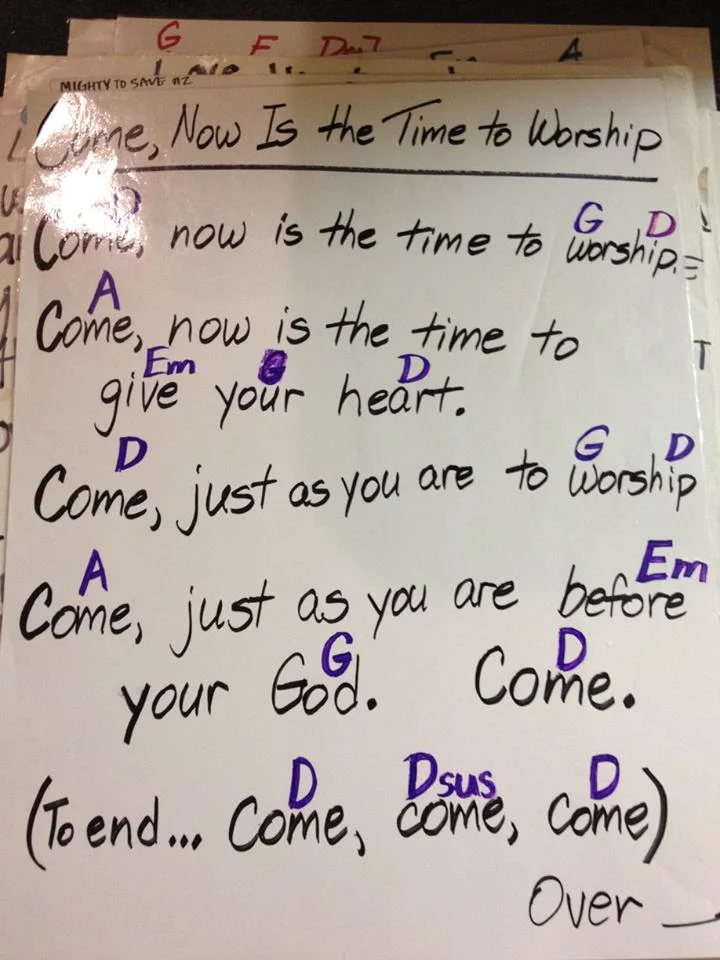 G F Dm7 Em A
MIGHTY TO SAVE #2
Come, Now Is the Time to Worship
D G D
Come, now is the time to worship.
A
Come, now is the time to
Em G D
give your heart.
D G D
Come, just as you are to worship
A Em
Come, just as you are before
G D
your God. Come.
D Dsus D
(To end... Come, come, Come)
Over